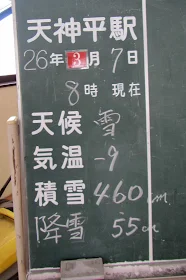 天神平駅
26年3月7日
8時 現在
天候 雪
気温 -9
積雪 460cm
降雪 55cm